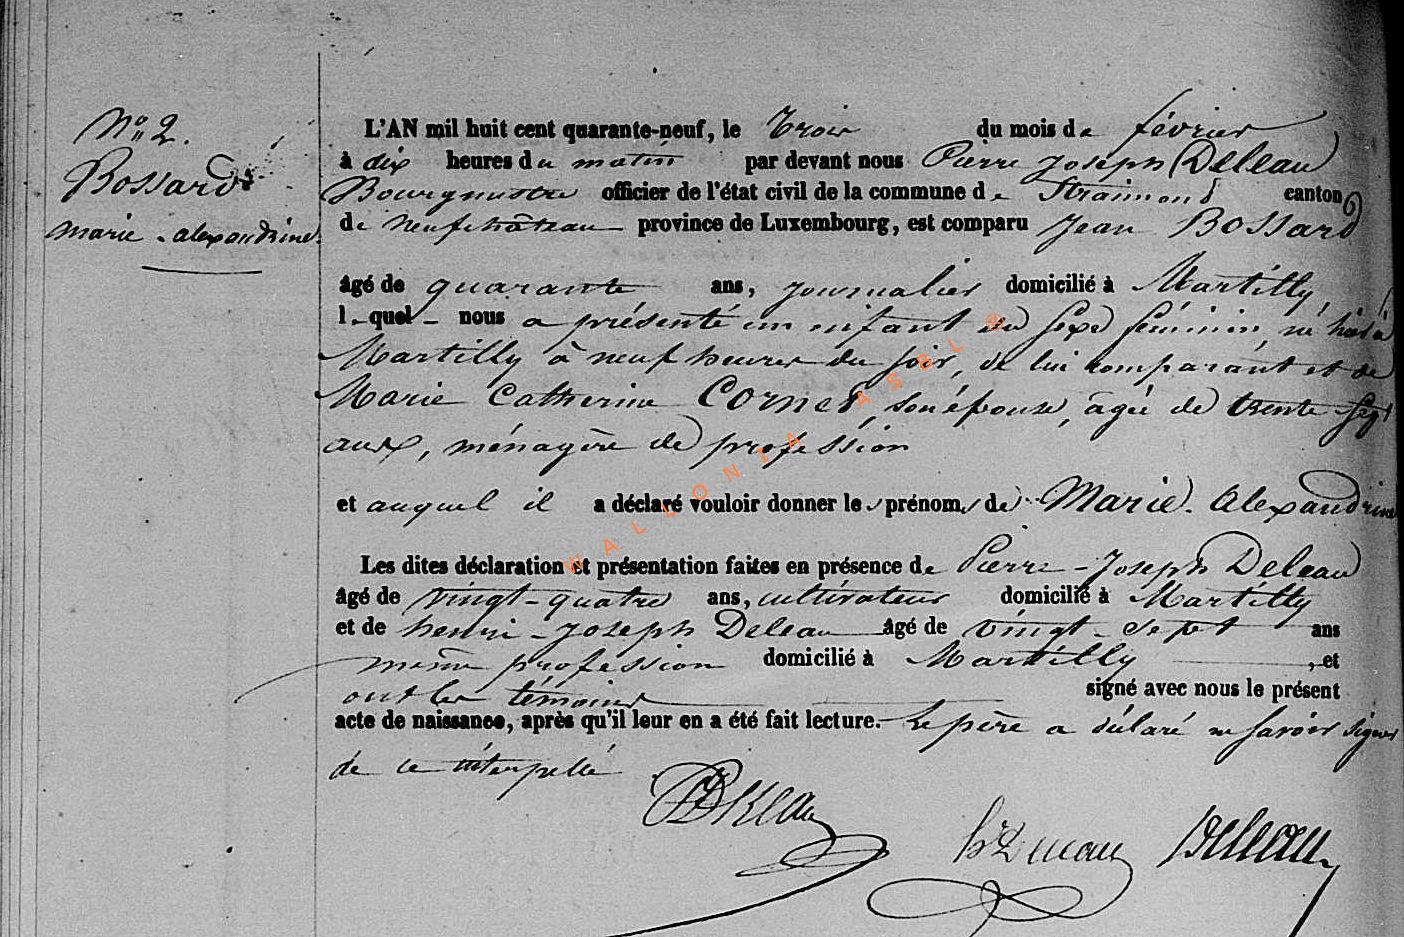 N° 2.
Bossard
marie-alexandrine.
L'AN mil huit cent quarante-neuf, le trois du mois de février
à dix heures du matin par devant nous Pierre Joseph Deleau
Bourgmestre officier de l'état civil de la commune de Straimont canton
de Neufchâteau province de Luxembourg, est comparu Jean Bossard
âgé de quarante ans, journalier domicilié à Martilly,
lequel nous a présenté un enfant du sexe féminin, né hier à
Martilly à neuf heures du soir, de lui comparant et de
Marie Catherine Cornet, son épouse, âgée de trente-sept
ans, ménagère de profession
et auquel il a déclaré vouloir donner les prénoms de Marie-Alexandrine
Les dites déclaration et présentation faites en présence de Pierre-Joseph Deleau
âgé de vingt-quatre ans, cultivateur domicilié à Martilly
et de henri-Joseph Deleau âgé de vingt-sept ans
même profession domicilié à Martilly, et
ont les témoins signé avec nous le présent
acte de naissance, après qu'il leur en a été fait lecture. Le père a déclaré ne savoir signer
de ce interpellé
PJDeleau
hJDeleau Deleau
WALLONIA ASBL ©